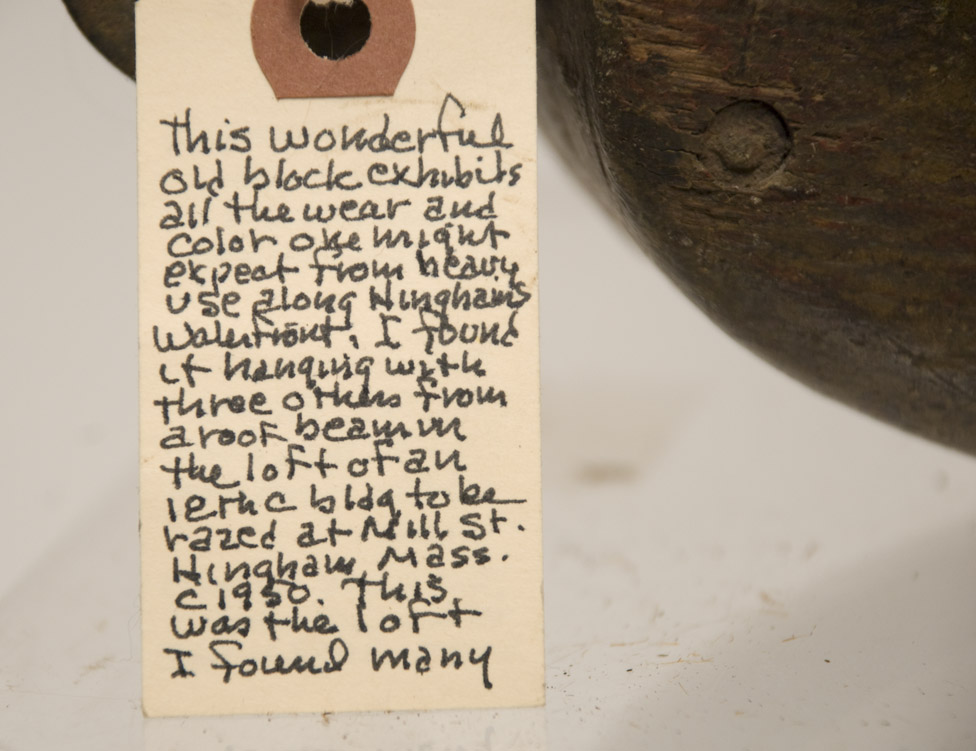 This wonderful
old block exhibits
all the wear and
color one might
expect from heavy
use along Hingham's
Waterfront. I found
it hanging with
three others from
a roof beam in
the loft of an
18th C bldg to be
razed at Mill St.
Hingham, Mass.
C 1950. This
was the loft
I found many